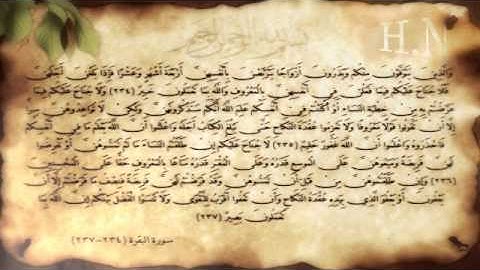 بسم الله الرحمن الرحيم
H.N
وَالَّذِينَ يُتَوَفَّوْنَ مِنكُمْ وَيَذَرُونَ أَزْوَاجًا يَتَرَبَّصْنَ بِأَنفُسِهِنَّ أَرْبَعَةَ أَشْهُرٍ وَعَشْرًا فَإِذَا بَلَغْنَ أَجَلَهُنَّ
فَلَا جُنَاحَ عَلَيْكُمْ فِيمَا فَعَلْنَ فِي أَنفُسِهِنَّ بِالْمَعْرُوفِ وَاللَّهُ بِمَا تَعْمَلُونَ خَبِيرٌ (٢٣٤) وَلَا جُنَاحَ عَلَيْكُمْ فِيمَا
عَرَّضْتُم بِهِ مِنْ خِطْبَةِ النِّسَاءِ أَوْ أَكْنَنتُمْ فِي أَنفُسِكُمْ عَلِمَ اللَّهُ أَنَّكُمْ سَتَذْكُرُونَهُنَّ وَلَكِن لَّا تُوَاعِدُوهُنَّ سِرًّا
إِلَّا أَن تَقُولُوا قَوْلًا مَّعْرُوفًا وَلَا تَعْزِمُوا عُقْدَةَ النِّكَاحِ حَتَّى يَبْلُغَ الْكِتَابُ أَجَلَهُ وَاعْلَمُوا أَنَّ اللَّهَ يَعْلَمُ مَا فِي أَنفُسِكُمْ
فَاحْذَرُوهُ وَاعْلَمُوا أَنَّ اللَّهَ غَفُورٌ حَلِيمٌ (٢٣٥) لَّا جُنَاحَ عَلَيْكُمْ إِن طَلَّقْتُمُ النِّسَاءَ مَا لَمْ تَمَسُّوهُنَّ أَوْ تَفْرِضُوا
لَهُنَّ فَرِيضَةً وَمَتِّعُوهُنَّ عَلَى الْمُوسِعِ قَدَرُهُ وَعَلَى الْمُقْتِرِ قَدَرُهُ مَتَاعًا بِالْمَعْرُوفِ حَقًّا عَلَى الْمُحْسِنِينَ
(٢٣٦) وَإِن طَلَّقْتُمُوهُنَّ مِن قَبْلِ أَن تَمَسُّوهُنَّ وَقَدْ فَرَضْتُمْ لَهُنَّ فَرِيضَةً فَنِصْفُ مَا فَرَضْتُمْ إِلَّا أَن
يَعْفُونَ أَوْ يَعْفُوَ الَّذِي بِيَدِهِ عُقْدَةُ النِّكَاحِ وَأَن تَعْفُوا أَقْرَبُ لِلتَّقْوَى وَلَا تَنسَوُا الْفَضْلَ بَيْنَكُمْ إِنَّ اللَّهَ بِمَا
تَعْمَلُونَ بَصِيرٌ (٢٣٧)
سورة البقرة (٢٣٤-٢٣٧)